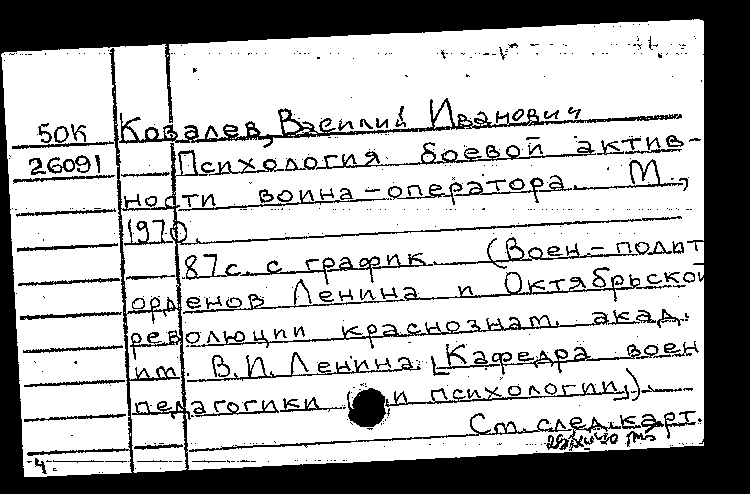 50К Ковалев, Василий Иванович
26091 Психология боевой актив-
ности воина-оператора. М.,
1970.
87с. с график. (Воен-полит
орденов Ленина и Октябрьской
революции краснознам. акад.
им. В.И. Ленина. Кафедра воен
педагогики и психологии).
См. след. карт.
Ч.